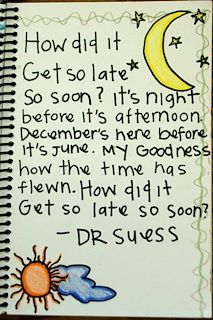 How did it
Get so late
So soon? It's night
before it's afternoon.
December's here before
it's June. My Goodness
how the time has
flewn. How did it
Get so late so soon?
- DR SUESS